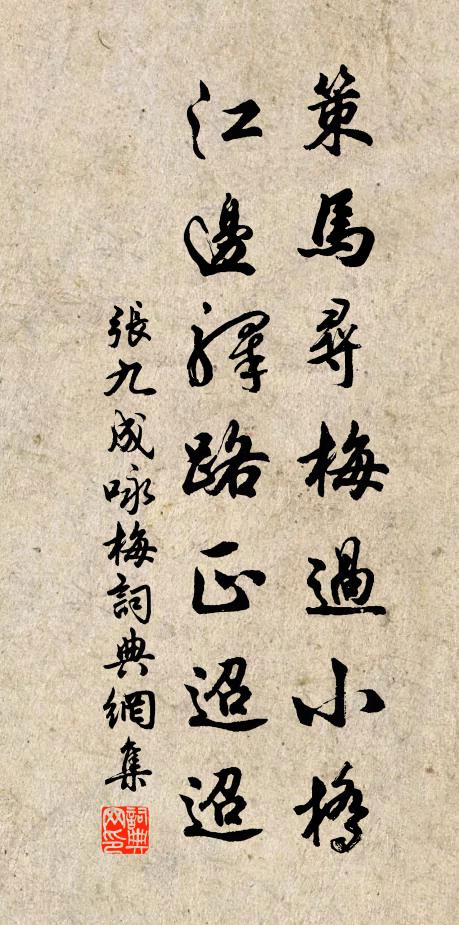 策馬尋梅過小橋
江邊驛路正迢迢
張九成咏梅詞典網集
詞典網印